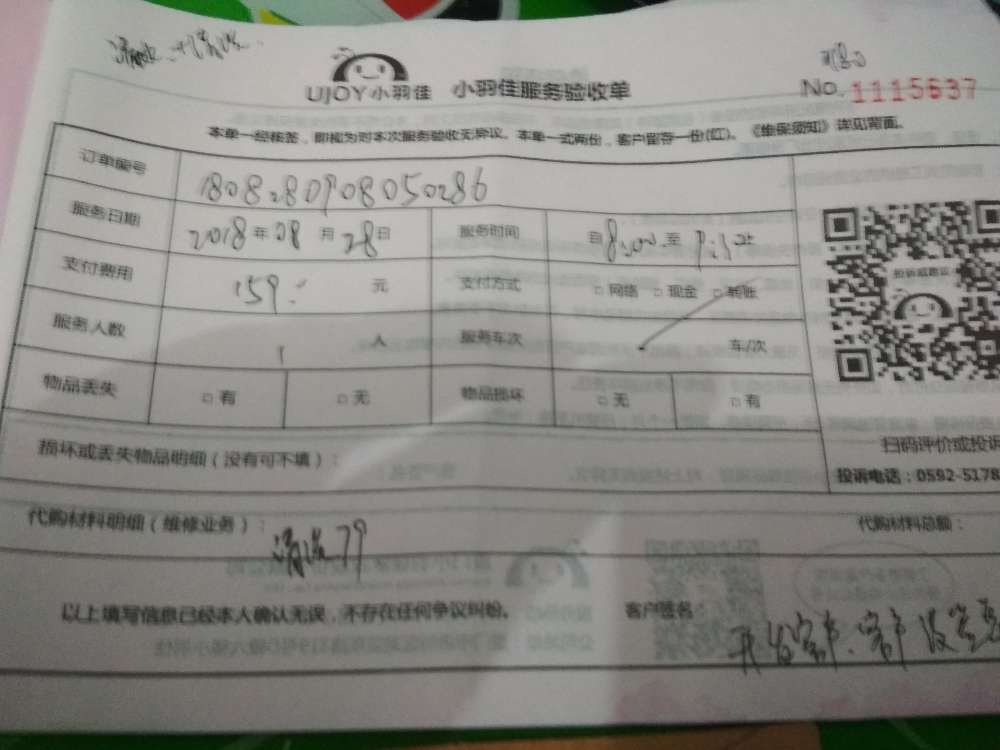 UJOY小羽佳 小羽佳服务验收单
No. 1115637
本单一经核签，即视为对本次服务验收无异议。本单一式两份，客户留存一份(红)。《维保须知》详见背面。
订单编号 1808280908050286
服务日期 2018年08月28日 服务时间 自8:00至
支付费用 159 元 支付方式 □网络 □现金 □转账
服务人数 1 人 服务车次 车/次
物品丢失 □有 □无 物品损坏 □无 □有
投诉或建议
损坏或丢失物品明细（没有可不填）：
扫码评价或投诉
投诉电话：0592-5178
代购材料明细（维修业务）： 清洗79
代购材料总额：
以上填写信息已经本人确认无误，不存在任何争议纠纷。 客户签名：